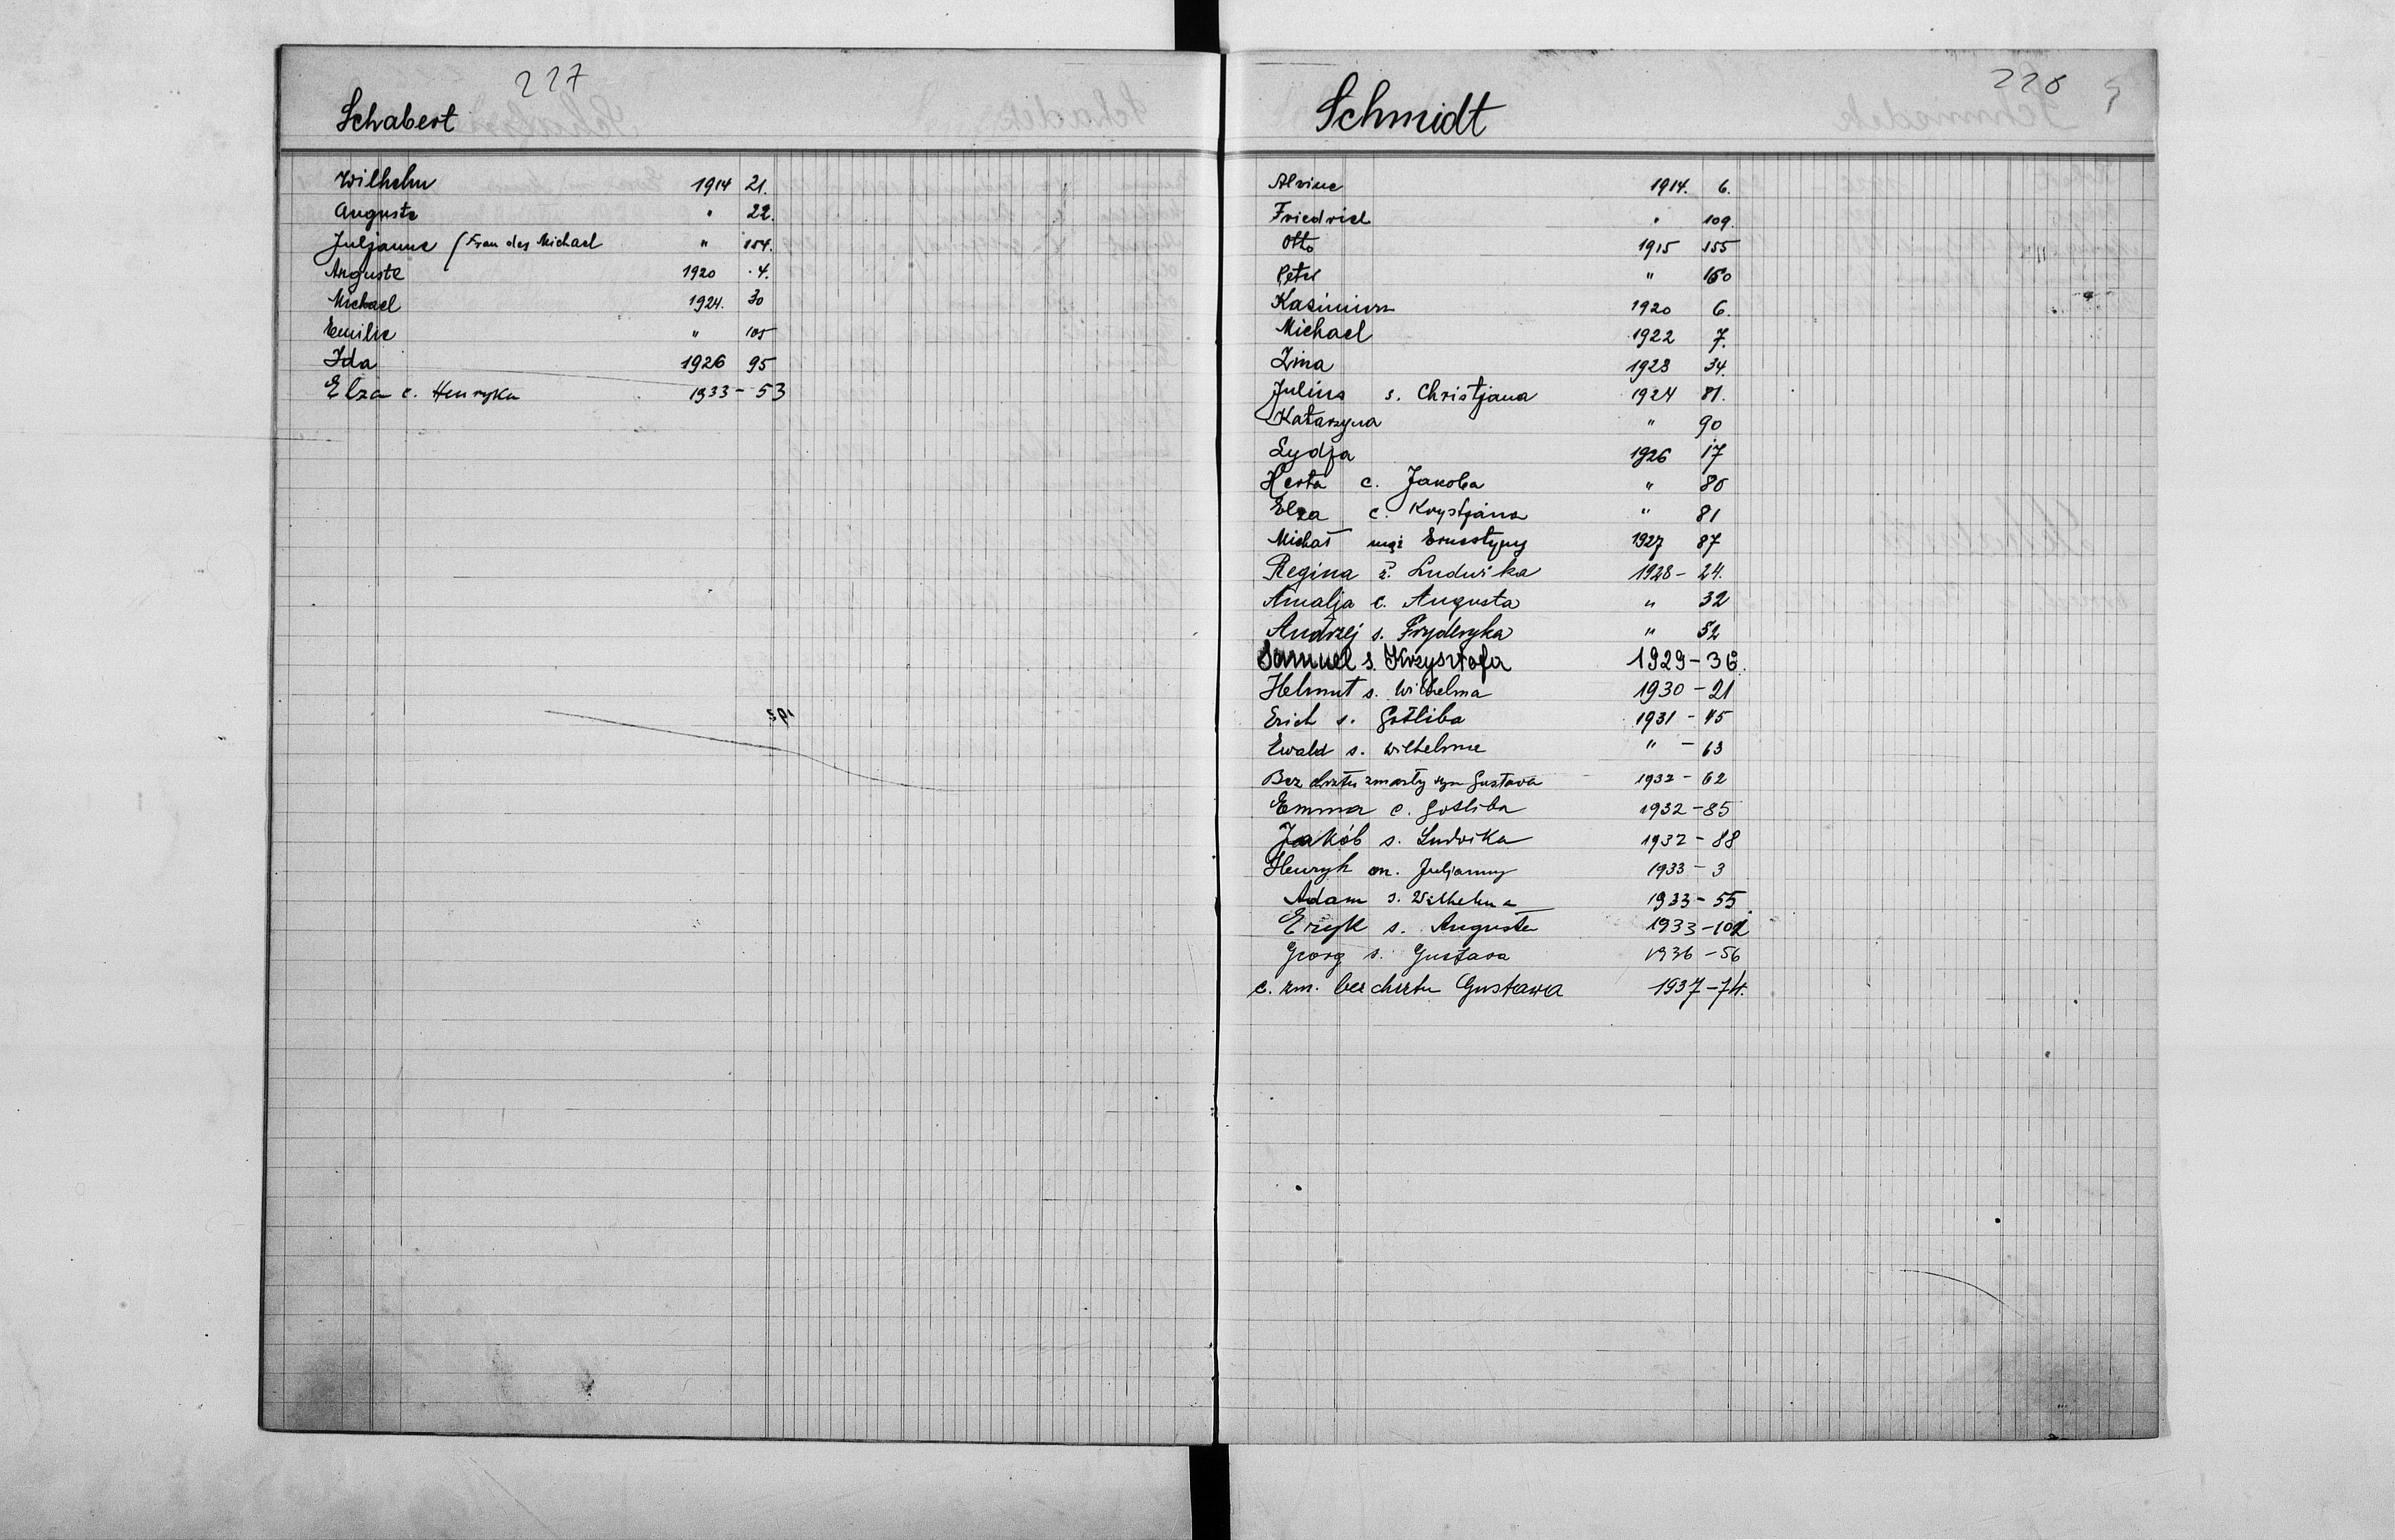 227
Schabert
Wilhelm 1914 21.
Auguste " 22.
Juljanne (Frau des Michael " 154.
Auguste 1920 4.
Michael 1924. 30
Emilie " 105
Ida 1926 95
Elza c. Henryka 1933 - 53
228
Schmidt
Alvine 1914. 6.
Friedrich " 109.
Otto 1915 155
Peter " 160
Kasimierz 1920 6.
Michael 1922 7.
Lina 1923 34.
Julius s. Christjana 1924 81.
Katarzyna " 90
Lydja 1926 17
Herta c. Jakoba " 80
Elza c. Krystjana " 81
Michał mąż Ernestyny 1927 87
Regina ż. Ludwika 1928 - 24.
Amalja c. Augusta " 32
Andrzej s. Fryderyka " 52
Samuel s. Krzysztofa 1929 - 36.
Helmut s. Wilhelma 1930 - 21
Erich s. Gotliba 1931 - 45
Ewald s. Wilhelma " - 63
Bez chrztu zmarły syn Gustava 1932 - 62
Emma c. Gotliba 1932 - 85
Jakób s. Ludvika 1932 - 88
Henryk m. Juljanny 1933 - 3
Adam s. Wilhelma 1933 - 55
Eryk s. Augusta 1933 - 102
Georg s. Gustava 1936 - 56
c. zm. bez chrztu Gustawa 1937 - 74.